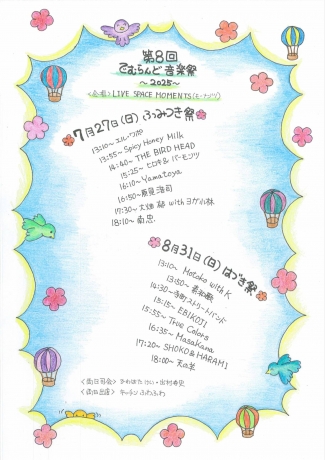 第8回
でむらんど音楽祭
～2025～
<会場> LIVE SPACE MOMENTS
7月27日(日) ふみつき祭
13:10～エル・ワポ
13:55～ Spicy Honey Milk
14:40～ THE BIRD HEAD
15:25～ ヒロキ& バーモンツ
16:10～ Yamatoya
16:50～ 浩司
17:30～ 大畑 with ヨゲ小林
18:10～ 南忠
8月31日(日) はづき祭
13:10～ Motoko with K
13:50～
14:30～ 寺町ストリートバンド
15:15～ EBIKOJI
15:55～ True Colors
16:35～ Masakana
17:20～ SHOKO & HARAMI
18:00～ 天の羊
<両日司会> かわばたけい・出村幸史
<両日出店> キッチンふわふわ